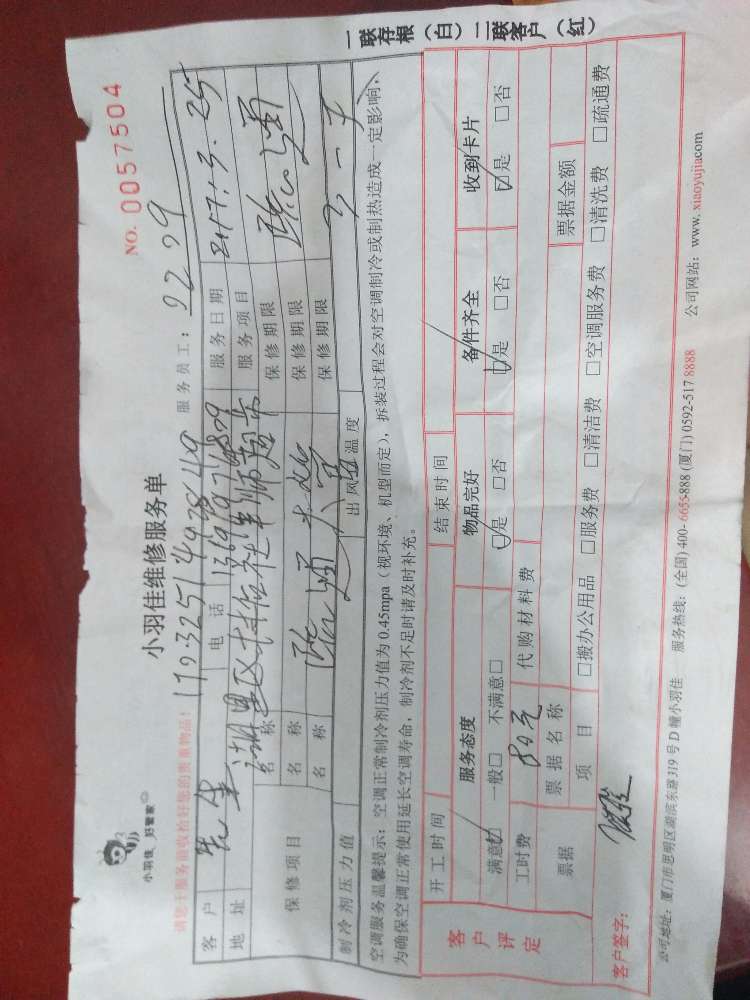 小羽佳 好管家
小羽佳维修服务单
NO. 0057504
请您于服务前收拾好您的贵重物品!
170325149284 服务员工: 9209
客户 先生 电话 服务日期 2017.3.25
地址 湖里区 服务项目
保修项目 名称 保修期限
名称 保修期限
名称 保修期限
制冷剂压力值 出风温度
空调服务温馨提示: 空调正常制冷剂压力值为 0.45mpa(视环境、机型而定), 拆装过程会对空调制冷或制热造成一定影响,
为确保空调正常使用延长空调寿命, 制冷剂不足时请及时补充。
客户评定
开工时间 结束时间
服务态度 物品完好 备件齐全 收到卡片
满意☑ 一般□ 不满意□ ☑是 □否 ☑是 □否 ☑是 □否
工时费 80元 代购材料费
票据 票据名称 票据金额
项目 □搬办公用品 □服务费 □清洁费 □空调服务费 □清洗费 □疏通费
客户签字:
公司地址: 厦门市思明区湖滨东路319号D幢小羽佳 服务热线: (全国) 400-6655-888 (厦门) 0592-517 8888 公司网站: www. xiaoyujiacom
一联存根(白)二联客户(红)